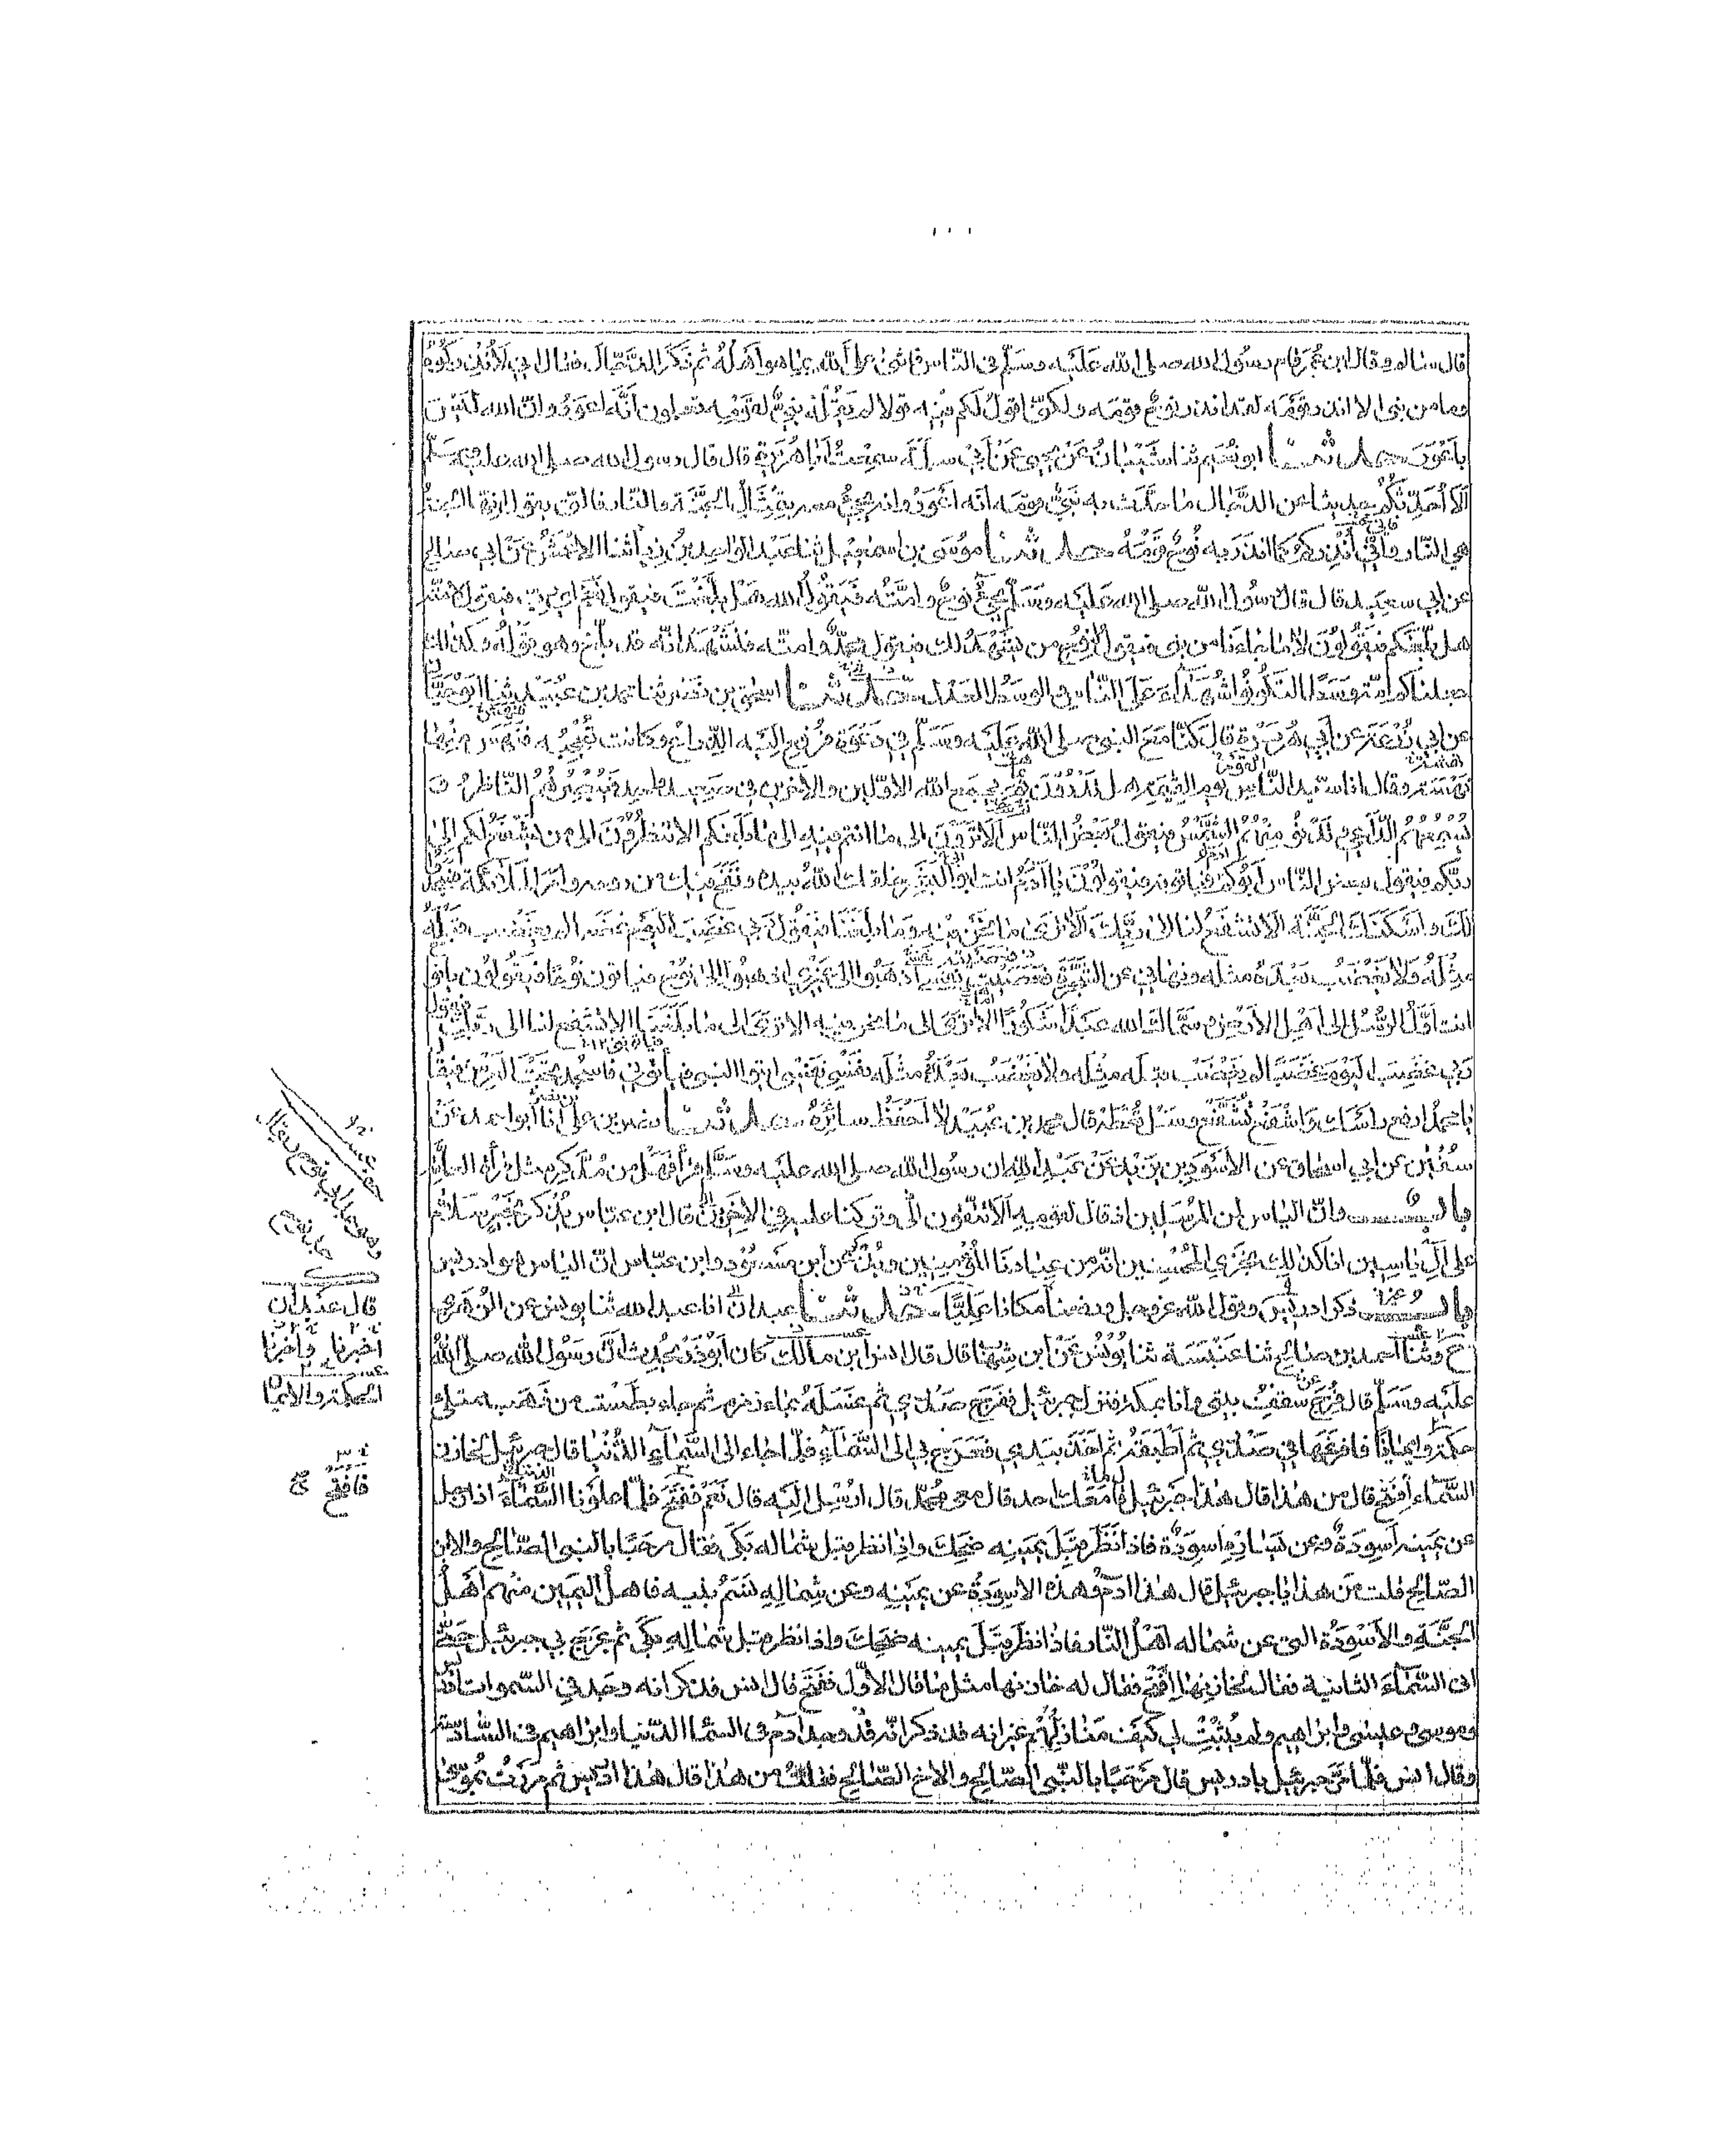 قال سالم وقال ابن عمر قام رسول الله صلى الله عليه وسلم في الناس فاثنى على الله بما هو اهله ثم ذكر الدجال فقال اني لأنذركموه
وما من نبي الا انذره قومه لقد انذر نوح قومه ولكني اقول لكم فيه قولا لم يقله نبي لقومه تعلمون انه اعور وان الله ليس
باعور حدثنا ابو نعيم ثنا شيبان عن يحيى عن أبي سلمة سمعت أبا هريرة قال قال رسول الله صلى الله عليه وسلم
ألا أحدثكم حديثا عن الدجال ما حدث به نبي قومه انه اعور وانه يجيء معه بمثال الجنة والنار فالتي يقول انها الجنة
هي النار واني أنذركم كما انذر به نوح قومه حدثنا موسى بن اسمعيل ثنا عبد الواحد بن زياد ثنا الاعمش عن أبي صالح
عن ابي سعيد قال قال رسول الله صلى الله عليه وسلم يجيء نوح وامته فيقول الله هل بلغت فيقول نعم اي رب فيقول لامته
هل بلغكم فيقولون لا ما جاءنا من نبي فيقول لنوح من يشهد لك فيقول محمد وامته فنشهد انه قد بلغ وهو قوله وكذلك
جعلناكم امة وسطا لتكونوا شهداء على الناس والوسط العدل حدثنا اسحق بن نصر ثنا محمد بن عبيد ثنا ابو حيان
عن ابي زرعة عن أبي هريرة قال كنا مع النبي صلى الله عليه وسلم في دعوة فرفع اليه الذراع وكانت تعجبه فنهس منها
نهسة وقال انا سيد الناس يوم القيمة هل تدرون بم يجمع الله الاولين والاخرين في صعيد واحد فيبصرهم الناظر و
يسمعهم الداعي وتدنو منهم الشمس فيقول بعض الناس ألا ترون الى ما انتم فيه الى ما بلغكم الا تنظرون الى من يشفع لكم إلى
ربكم فيقول بعض الناس أبوكم فياتونه فيقولون يا آدم انت ابو البشر خلقك الله بيده ونفخ فيك من روحه وامر الملائكة فسجدوا
لك واسكنك الجنة الا تشفع لنا الى ربك ألا ترى ما نحن فيه وما بلغنا فيقول ربي غضب اليوم غضبا لم يغضب قبله
مثله ولا يغضب بعده مثله ونهاني عن الشجرة فعصيت نفسي اذهبوا الى غيري اذهبوا إلى نوح فياتون نوحا فيقولون يا نوح
انت اول الرسل الى اهل الارض وسماك الله عبدا شكورا الا ترى الى ما نحن فيه الا ترى الى ما بلغنا الا تشفع لنا الى ربك فيقول
ربي غضب اليوم غضبا لم يغضب قبله مثله ولا يغضب بعده مثله نفسي نفسي ايتوا النبي فيأتوني فاسجد تحت العرش فيقال
يا محمد ارفع راسك واشفع تشفع وسل تعطه قال محمد بن عبيد لا احفظ سائره حدثنا نصر بن علي أنا أبو احمد عن
سفين عن ابي اسحاق عن الاسود بن يزيد عن عبد الله ان رسول الله صلى الله عليه وسلم قرأ فهل من مدكر مثل قرأة العامة
باب وان الياس لمن المرسلين اذ قال لقومه ألا تتقون الى وتركنا عليه في الاخرين قال ابن عباس يذكر بخير سلام
على آل ياسين انا كذلك نجزي المحسنين انه من عبادنا المؤمنين ويذكر عن ابن مسعود وابن عباس ان الياس هو ادريس
باب ذكر ادريس وقول الله عز وجل ورفعناه مكانا عليا حدثنا عبدان انا عبد الله ثنا يونس عن الزهري
ح وثنا احمد بن صالح ثنا عنبسة ثنا يونس عن ابن شهاب قال قال انس ابن مالك كان أبو ذر يحدث أن رسول الله صلى الله
عليه وسلم قال فرج سقف بيتي وانا بمكة فنزل جبرئيل ففرج صدري ثم غسله بماء زمزم ثم جاء بطست من ذهب ممتلئ
حكمة وايمانا فافرغها في صدري ثم أطبقه ثم اخذ بيدي فعرج بي الى السماء فلما جاء الى السماء الدنيا قال جبرئيل لخازن
السماء افتح قال من هذا قال هذا جبرئيل قال معك احد قال معي محمد قال ارسل اليه قال نعم ففتح فلما علونا السماء اذا رجل
عن يمينه أسودة وعن يساره اسودة فاذا نظر قبل يمينه ضحك واذا نظر قبل شماله بكى فقال مرحبا بالنبي الصالح والابن
الصالح قلت من هذا يا جبرئيل قال هذا ادم وهذه الاسودة عن يمينه وعن شماله نسم بنيه فاهل اليمين منهم أهل
الجنة والأسودة التي عن شماله اهل النار فاذا نظر قبل يمينه ضحك واذا نظر قبل شماله بكى ثم عرج بي جبرئيل حتى
اتى السماء الثانية فقال لخازنها افتح فقال له خازنها مثل ما قال الاول ففتح قال انس فذكر انه وجد في السموات ادريس
وموسى وعيسى وابراهيم ولم يثبت لي كيف منازلهم غير انه قد ذكر انه قد وجد آدم في السماء الدنيا وابراهيم في السادسة
وقال انس فلما مر جبرئيل بادريس قال مرحبا بالنبي الصالح والاخ الصالح فقلت من هذا قال هذا ادريس ثم مررت بموسى
قال عبدان
أخبرنا وأخبرنا
الحكمة والايمان
فافتح